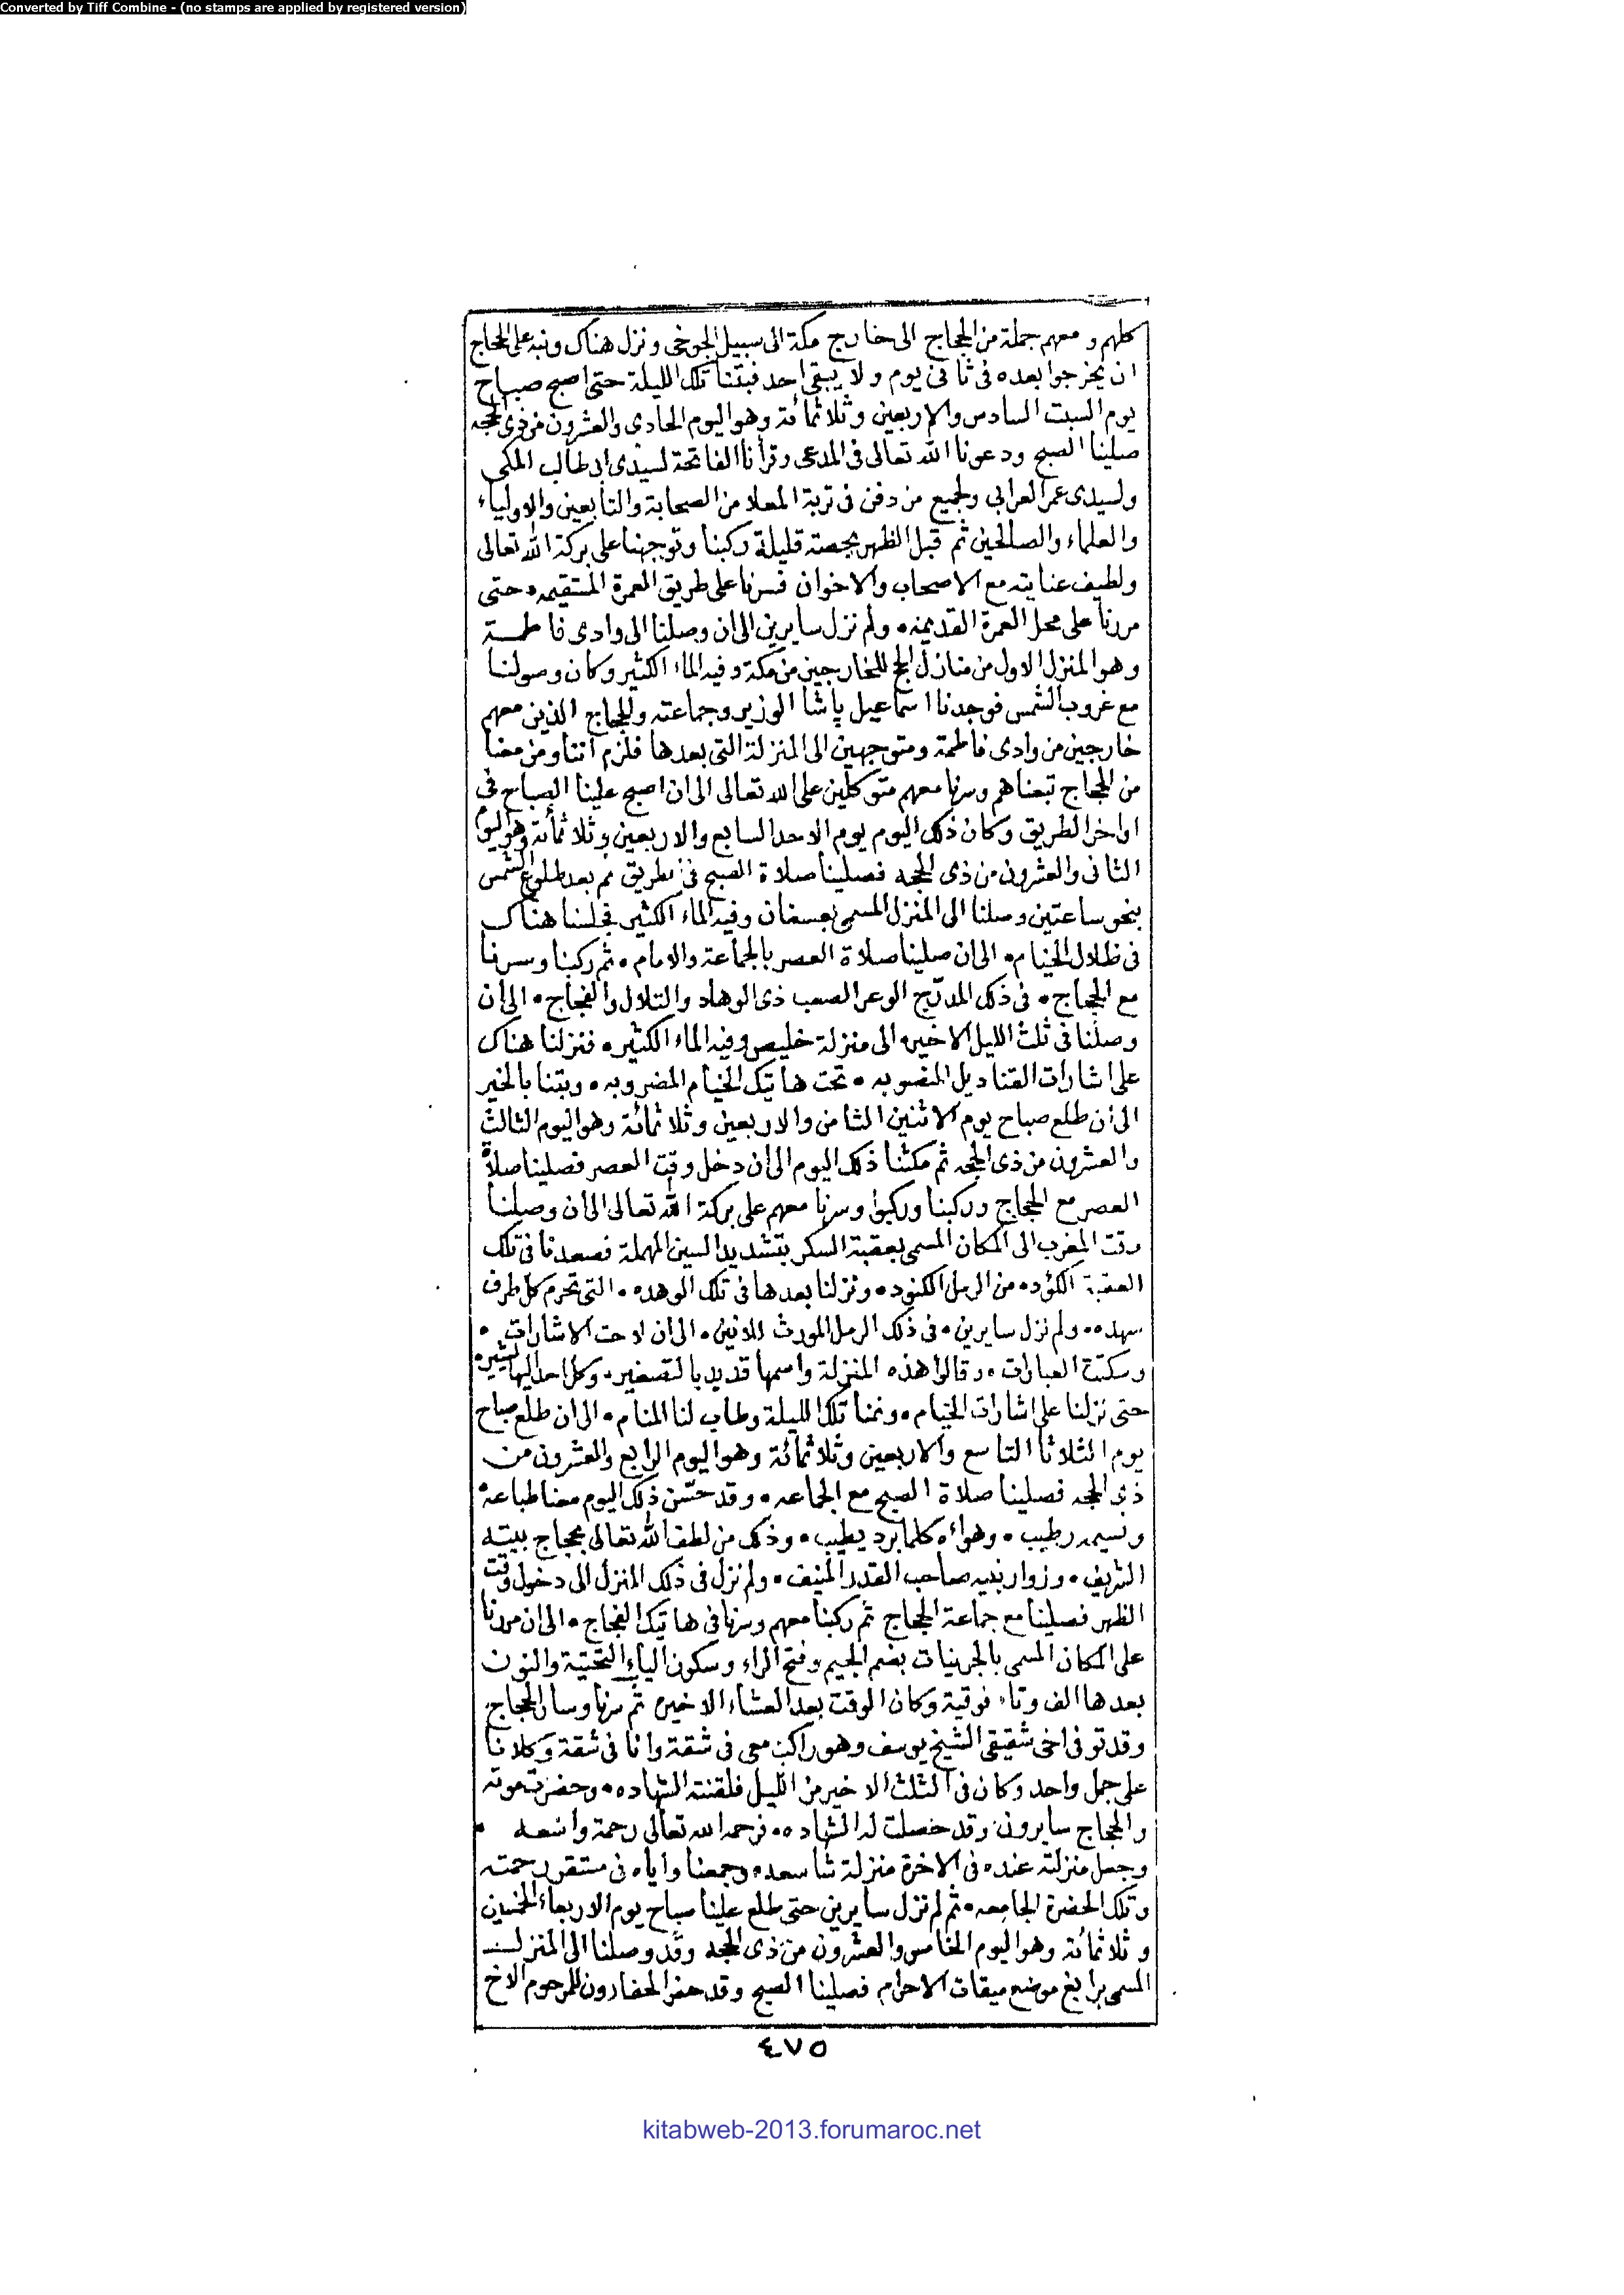 Converted by Tiff Combine - (no stamps are applied by registered version)
كلهم ومعهم جملة من الحجاج الى خارج مكة الى سبيل الجوخى ونزل هناك ونبه على الحجاج
ان يخرجوا بعده فى ثانى يوم ولا يبقى احد فبتنا تلك الليلة حتى اصبح صباح
يوم السبت السادس والاربعين وثلاثمائة وهو اليوم الحادى والعشرون من ذى الحجه
صلينا الصبح ودعونا الله تعالى فى المدعى وقرأنا الفاتحة لسيدى ابى طالب المكى
ولسيدى عمر العرابى ولجميع من دفن فى تربة المعلا من الصحابة والتابعين والاولياء
والعلماء والصالحين ثم قبل الظهر بحصة قليلة ركبنا وتوجهنا على بركة الله تعالى
ولطيف عنايته مع الاصحاب والاخوان فسرنا على طريق العمرة المستقيمه، حتى
مررنا على محل العمرة القديمه، ولم نزل سايرين الى ان وصلنا الى وادى فاطمة
وهو المنزل الاول من منازل الحج للخارجين من مكة وفيه الماء الكثير وكان وصولنا
مع غروب الشمس فوجدنا اسماعيل پاشا الوزير وجماعته والحجاج الذين معهم
خارجين من وادى فاطمة ومتوجهين الى المنزلة التى بعدها فلزم اننا ومن معنا
من الحجاج تبعناهم وسرنا معهم متوكلين على الله تعالى الى ان اصبح علينا الصباح فى
اواخر الطريق وكان ذلك اليوم يوم الاحد السابع والاربعين وثلاثمائة وهو اليوم
الثانى والعشرون من ذى الحجه فصلينا صلاة الصبح فى الطريق ثم بعد طلوع الشمس
بنحو ساعتين وصلنا الى المنزل المسمى بعسفان وفيه الماء الكثير فجلسنا هناك
فى ظلال الخيام، الى ان صلينا صلاة العصر بالجماعة والامام، ثم ركبنا وسرنا
مع الحجاج، فى ذلك المدرّج الوعر الصعب ذى الوهاد والتلال والفجاج، الى ان
وصلنا فى ثلث الليل الاخير، الى منزلة خليص وفيه الماء الكثير، فنزلنا هناك
على اشارات القناديل المنصوبه، تحت هاتيك الخيام المضروبه، وبتنا بالخير
الى ان طلع صباح يوم الاثنين الثامن والاربعين وثلاثمائة وهو اليوم الثالث
والعشرون من ذى الحجه ثم مكثنا ذلك اليوم الى ان دخل وقت العصر فصلينا صلاة
العصر مع الحجاج وركبنا وركبوا وسرنا معهم على بركة الله تعالى الى ان وصلنا
وقت المغرب الى المكان المسمى بعقبة السكر بتشديد السين المهملة فصعدنا فى تلك
العقبة الكؤده من الرمل الكنود، ونزلنا بعدها فى تلك الوهده، التى تحرم كل طرف
سهده، ولم نزل سايرين، فى ذلك الرمل المورث للانين، الى ان لاحت الاشارات،
وسكتت العبارات، وقالوا هذه المنزلة واسمها قديد بالتصغير، وكل احد اليها يشير،
حتى نزلنا على اشارات الخيام، ونمنا تلك الليلة وطاب لنا المنام، الى ان طلع صباح
يوم الثلاثا التاسع والاربعين وثلاثمائة وهو اليوم الرابع والعشرون من
ذى الحجه فصلينا صلاة الصبح مع الجماعه، وقد حسّن ذلك اليوم معنا طباعه
ونسيمه رطيب، وهواه كلما برد يطيب، وذلك من لطف الله تعالى بحجاج بيته
الشريف، وزوار نبيه صاحب القدر المنيف، ولم نزل فى ذلك المنزل الى دخول وقت
الظهر فصلينا مع جماعة الحجاج ثم ركبنا معهم وسرنا فى هاتيك الفجاج، الى ان مررنا
على المكان المسمى بالجرينات بضم الجيم وفتح الراء وسكون الياء التحتية والنون
بعدها الف وتاء فوقية وكان الوقت بعد العشاء الاخيره ثم سرنا وسار الحجاج
وقد توفى اخى شقيقى الشيخ يوسف وهو راكب معى فى شقة وانا فى شقة وكلانا
على جمل واحد وكان فى الثلث الاخير من الليل فلقنته الشهاده، وحضرت موته
والحجاج سايرون وقد حصلت له الشهاده، فرحمه الله تعالى رحمة واسعه
وجعل منزلته عنده فى الاخرة منزلة شاسعه، وجمعنا واياه فى مستقر رحمته
وتلك الحضرة الجامعه، ثم لم نزل سايرين حتى طلع علينا صباح يوم الاربعاء الخمسين
وثلاثمائة وهو اليوم الخامس والعشرون من ذى الحجه وقد وصلنا الى المنزل
المسمى برابغ موضع ميقات الاحرام فصلينا الصبح وقد حفر الحفارون للمرحوم الاخ
٤٧٥
kitabweb-2013.forumaroc.net